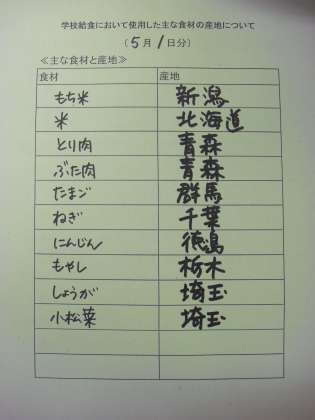 学校給食において使用した主な食材の産地について
(5月1日分)
≪主な食材と産地≫
食材 産地
もち米 新潟
米 北海道
とり肉 青森
ぶた肉 青森
たまご 群馬
ねぎ 千葉
にんじん 徳島
もやし 栃木
しょうが 埼玉
小松菜 埼玉